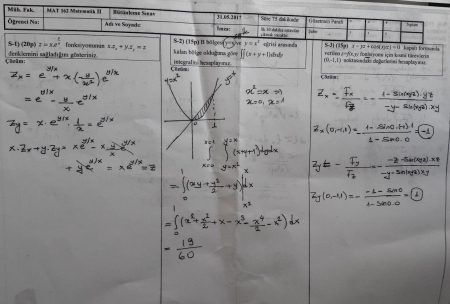 Müh. Fak.
MAT 162 Matematik II
Bütünleme Sınav
31.05.2017
Süre 75 dakikadır
Öğrenci No:
Adı ve Soyadı:
İmza:
S-1) (20p) z = xe^{y/x} fonksiyonunun x.z_x + y.z_y = z
denklemini sağladığını gösteriniz.
Çözüm:
Z_x = e^{y/x} + x(-y/x²)e^{y/x}
= e^{y/x} - y/x e^{y/x}
Z_y = x.e^{y/x}.1/x = e^{y/x}
x.Z_x + y.Z_y = xe^{y/x} - x y/x e^{y/x}
+ y e^{y/x} = xe^{y/x} = z
S-2) (15p) B bölgesi y = x² eğrisi arasında
kalan bölge olduğuna göre ∬(x+y+1)dxdy
integralini hesaplayınız.
Çözüm:
y=x²
y=x
x²=x ⇒
x=0, x=1
0
1
y=x
∫∫(x+y+1)dydx
x=0 y=x²
= ∫(xy + y²/2 + y)dx
= ∫(x² + x²/2 + x - x³ - x⁴/2 - x²)dx
= 19/60
S-3) (15p) x - yz + cos(xyz) = 0 kapalı formunda
verilen z=f(x,y) fonksiyonu için kısmi türevlerin
(0,-1,1) noktasındaki değerlerini hesaplayınız.
Çözüm:
Z_x = - F_x/F_z = - 1 - Sin(xyz).yz / -y - Sin(xyz).xy
Z_x(0,-1,1) = - 1 - Sin0.(-1).1 / 1 - Sin0.0 = -1
Z_y = - F_y/F_z = - -z - Sin(xyz).xz / -y - Sin(xyz).xy
Z_y(0,-1,1) = - -1 - Sin0.0 / 1 - Sin0.0 = 1